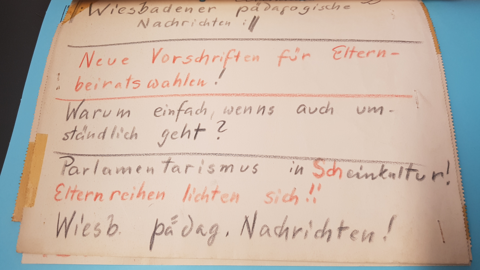 Wiesbadener pädagogische
Nachrichten:
Neue Vorschriften für Eltern-
beiratswahlen!
Warum einfach, wenns auch um-
ständlich geht?
Parlamentarismus in Scheinkultur!
Elternreihen lichten sich!!
Wiesb. pädag. Nachrichten!